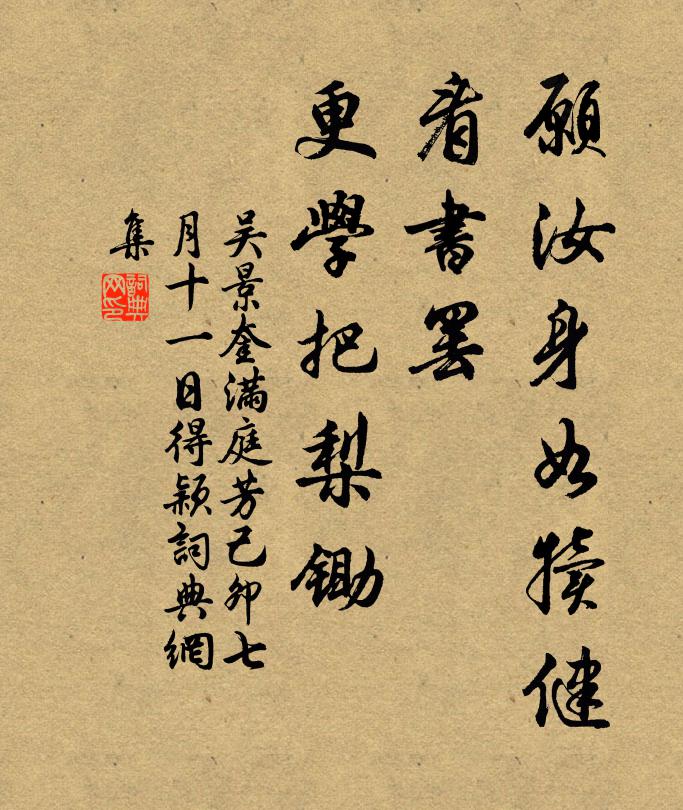 願汝身如犢健
看書罷
更學把梨鋤
吴景奎滿庭芳己卯七
月十一日得穎詞典網
集
詞典网印